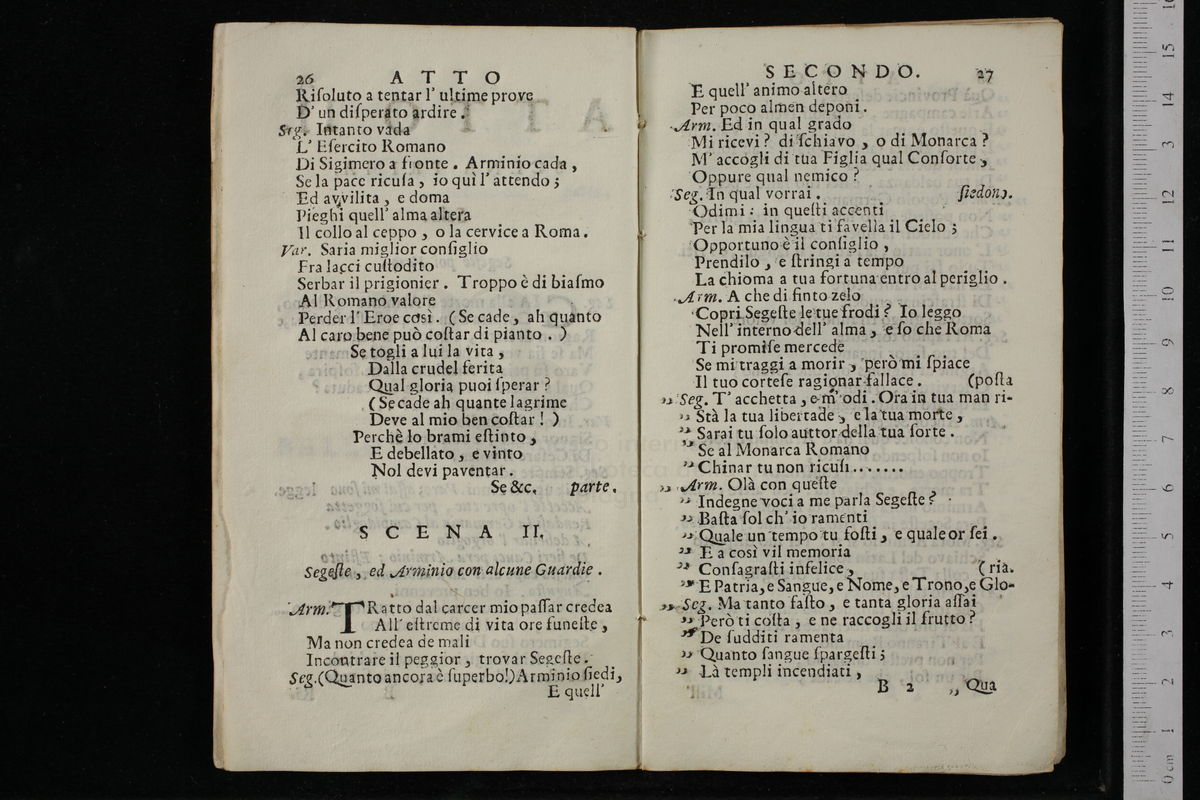 26 ATTO
Riſoluto a tentar l' ultime prove
D' un diſperato ardire.
Seg. Intanto vada
L' Eſercito Romano
Di Sigimero a fronte. Arminio cada,
Se la pace ricuſa, io quì l' attendo;
Ed avvilita, e doma
Pieghi quell' alma altera
Il collo al ceppo, o la cervice a Roma.
Var. Saria miglior conſiglio
Fra lacci cuſtodito
Serbar il prigionier. Troppo è di biaſmo
Al Romano valore
Perder l' Eroe così. (Se cade, ah quanto
Al caro bene può coſtar di pianto.)
Se togli a lui la vita,
Dalla crudel ferita
Qual gloria puoi ſperar?
(Se cade ah quante lagrime
Deve al mio ben coſtar!)
Perchè lo brami eſtinto,
E debellato, e vinto
Nol devi paventar.
Se &c. parte.
SCENA II.
Segeſte, ed Arminio con alcune Guardie.
Arm. TRatto dal carcer mio paſſar credea
All' eſtreme di vita ore funeſte,
Ma non credea de mali
Incontrare il peggior, trovar Segeſte.
Seg. (Quanto ancora è ſuperbo!) Arminio ſiedi,
E quell'
SECONDO. 27
E quell' animo altero
Per poco almen deponi.
Arm. Ed in qual grado
Mi ricevi? di ſchiavo, o di Monarca?
M' accogli di tua Figlia qual Conſorte,
Oppure qual nemico?
Seg. In qual vorrai. ſiedono.
Odimi: in queſti accenti
Per la mia lingua ti favella il Cielo;
Opportuno è il conſiglio,
Prendilo, e ſtringi a tempo
La chioma a tua fortuna entro al periglio.
Arm. A che di finto zelo
Copri Segeſte le tue frodi? Io leggo
Nell' interno dell' alma, e ſo che Roma
Ti promiſe mercede
Se mi traggi a morir, però mi ſpiace
Il tuo corteſe ragionar fallace. (poſta
„ Seg. T' acchetta, e m' odi. Ora in tua man ri-
„ Stà la tua libertade, e la tua morte,
„ Sarai tu ſolo auttor della tua ſorte.
„ Se al Monarca Romano
„ Chinar tu non ricuſi.......
„ Arm. Olà con queſte
„ Indegne voci a me parla Segeſte?
„ Baſta ſol ch' io ramenti
„ Quale un tempo tu foſti, e quale or ſei.
„ E a così vil memoria
„ Conſagraſti infelice, (ria.
„ E Patria, e Sangue, e Nome, e Trono, e Glo-
„ Seg. Ma tanto faſto, e tanta gloria aſſai
„ Però ti coſta, e ne raccogli il frutto?
„ De ſudditi ramenta
„ Quanto ſangue ſpargeſti;
„ Là templi incendiati,
B 2 „ Qua